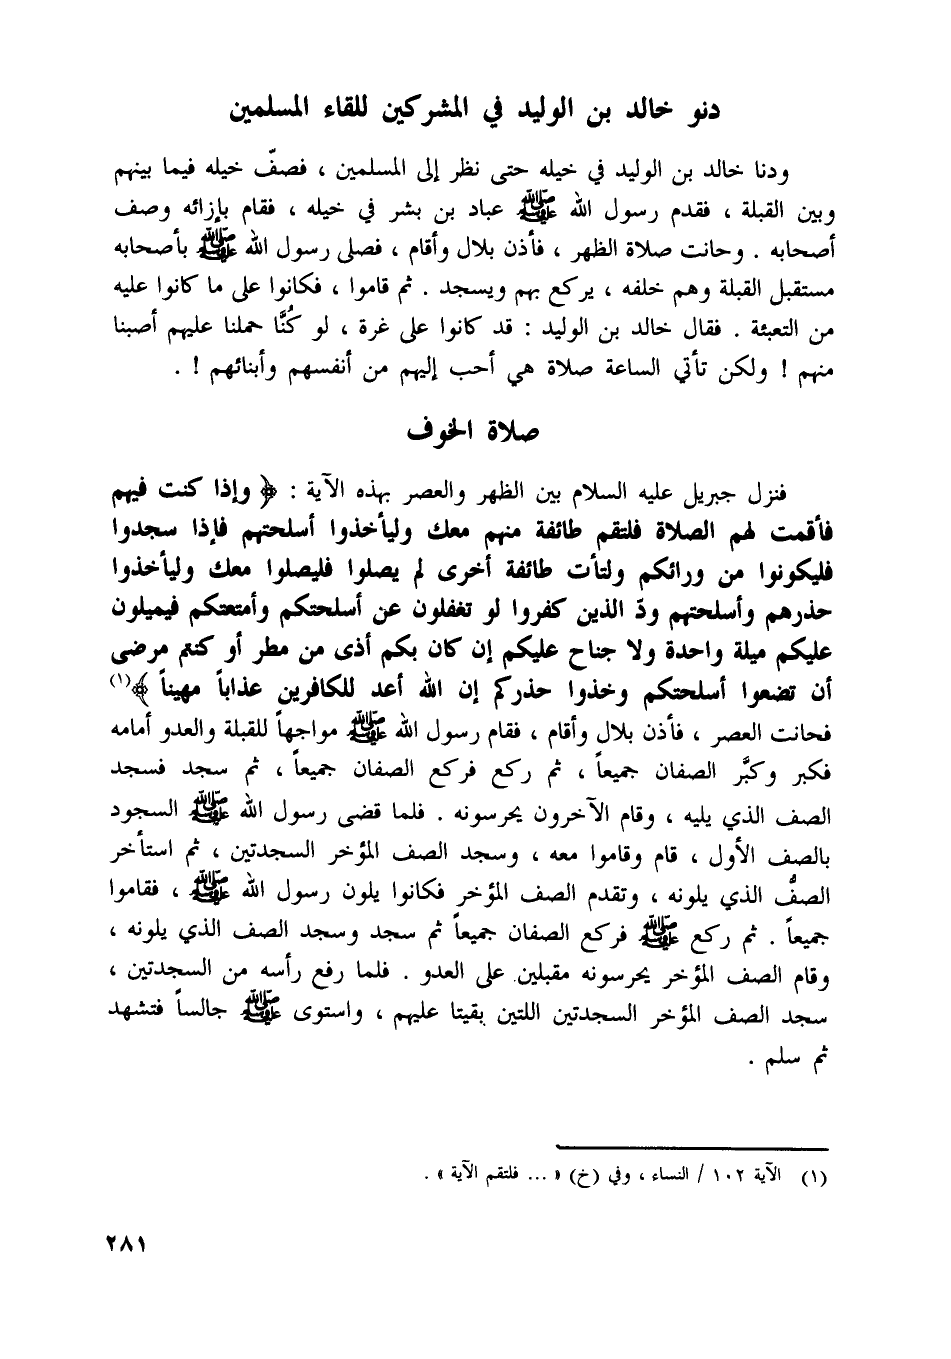 دنو خالد بن الوليد في المشركين للقاء المسلمين
ودنا خالد بن الوليد في خيله حتى نظر إلى المسلمين ، فصفّ خيله فيما بينهم
وبين القبلة ، فقدم رسول الله ﷺ عباد بن بشر في خيله ، فقام بإزائه وصف
أصحابه . وحانت صلاة الظهر ، فأذن بلال وأقام ، فصلى رسول الله ﷺ بأصحابه
مستقبل القبلة وهم خلفه ، يركع بهم ويسجد . ثم قاموا ، فكانوا على ما كانوا عليه
من التعبئة . فقال خالد بن الوليد : قد كانوا على غرة ، لو كُنَّا حملنا عليهم أصبنا
منهم ! ولكن تأتي الساعة صلاة هي أحب إليهم من أنفسهم وأبنائهم ! .
صلاة الخوف
فنزل جبريل عليه السلام بين الظهر والعصر بهذه الآية : ﴿ وإذا كنت فيهم
فأقمت لهم الصلاة فلتقم طائفة منهم معك وليأخذوا أسلحتهم فإذا سجدوا
فليكونوا من ورائكم ولتأت طائفة أخرى لم يصلوا فليصلوا معك وليأخذوا
حذرهم وأسلحتهم ودّ الذين كفروا لو تغفلون عن أسلحتكم وأمتعتكم فيميلون
عليكم ميلة واحدة ولا جناح عليكم إن كان بكم أذى من مطر أو كنتم مرضى
أن تضعوا أسلحتكم وخذوا حذركم إن الله أعد للكافرين عذاباً مهيناً ﴾(١)
فحانت العصر ، فأذن بلال وأقام ، فقام رسول الله ﷺ مواجهاً للقبلة والعدو أمامه
فكبر وكبَّر الصفان جميعاً ، ثم ركع فركع الصفان جميعاً ، ثم سجد فسجد
الصف الذي يليه ، وقام الآخرون يحرسونه . فلما قضى رسول الله ﷺ السجود
بالصف الأول ، قام وقاموا معه ، وسجد الصف المؤخر السجدتين ، ثم استأخر
الصفُّ الذي يلونه ، وتقدم الصف المؤخر فكانوا يلون رسول الله ﷺ ، فقاموا
جميعاً . ثم ركع ﷺ فركع الصفان جميعاً ثم سجد وسجد الصف الذي يلونه ،
وقام الصف المؤخر يحرسونه مقبلين على العدو . فلما رفع رأسه من السجدتين ،
سجد الصف المؤخر السجدتين اللتين بقيتا عليهم ، واستوى ﷺ جالساً فتشهد
ثم سلم .
(١) الآية ١٠٢ / النساء ، وفي (خ) « ... فلتقم الآية » .
٢٨١